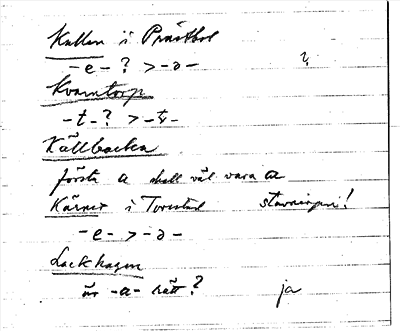 Kullen i Prästbol
-e-? > -ə- ?
Kvarntorp
-t-? > -ṭ-
Källbacka
första a skall väl vara a
Kärret i stavningen!
-e- > -ə-
Lockhagen
är -a- rätt? ja